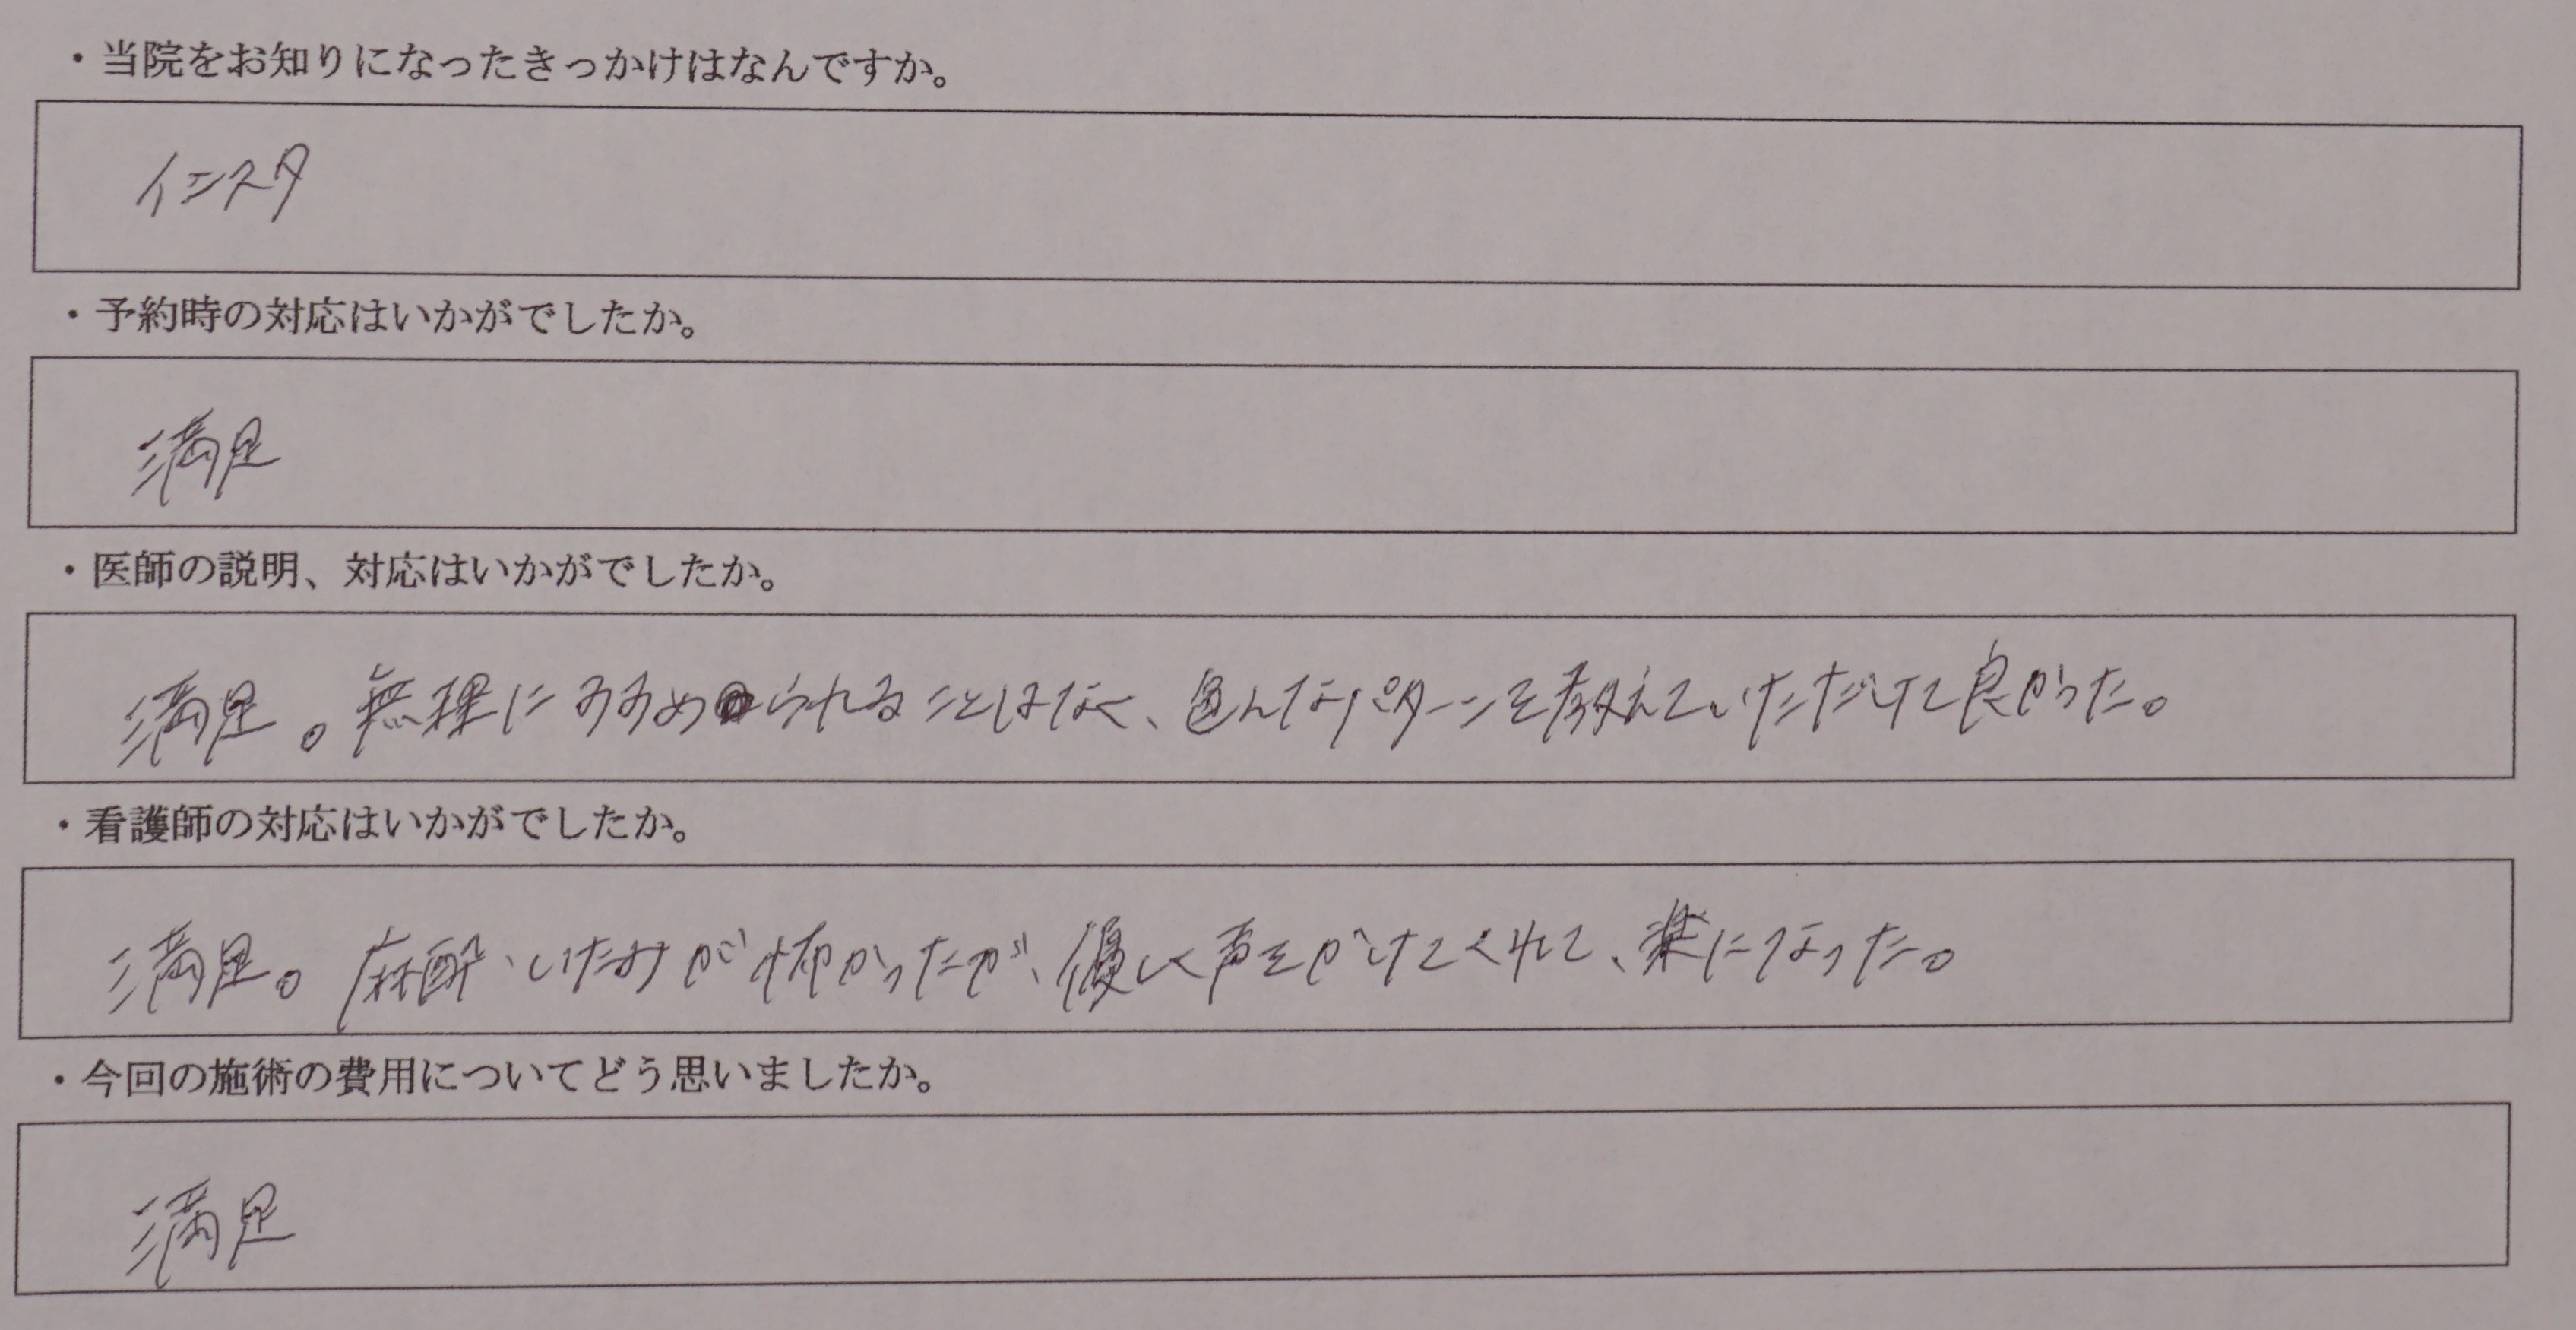 ・当院をお知りになったきっかけはなんですか。
インスタ
・予約時の対応はいかがでしたか。
満足
・医師の説明、対応はいかがでしたか。
満足。無理にすすめられることはなく、色んなパターンを教えていただけて良かった。
・看護師の対応はいかがでしたか。
満足。麻酔、いたみが怖かったが、優しく声をかけてくれて、楽になった。
・今回の施術の費用についてどう思いましたか。
満足